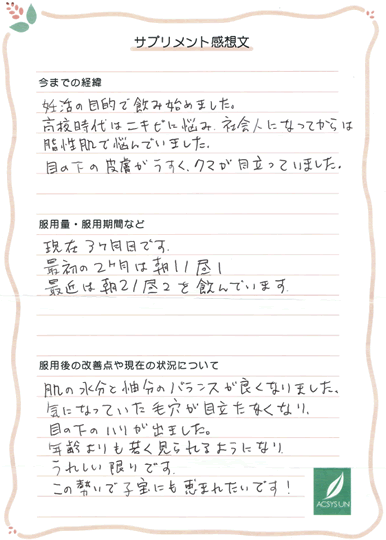 サプリメント感想文
今までの経緯
妊活の目的で飲み始めました。
高校時代はニキビに悩み、社会人になってからは
脂性肌で悩んでいました。
目の下の皮膚がうすく、クマが目立っていました。
服用量・服用期間など
現在3ヶ月目です。
最初の2ヶ月は朝1 昼1
最近は朝2 昼2を飲んでいます。
服用後の改善点や現在の状況について
肌の水分と油分のバランスが良くなりました。
気になっていた毛穴が目立たなくなり、
目の下のハリが出ました。
年齢よりも若く見られるようになり、
うれしい限りです。
この勢いで子宝にも恵まれたいです!
ACSYSLIN